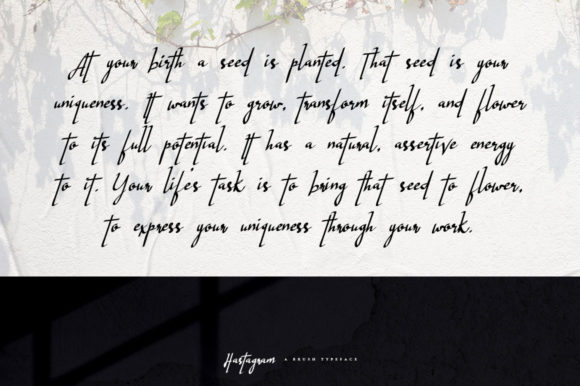 At your birth a seed is planted. That seed is your
uniqueness. It wants to grow, transform itself, and flower
to its full potential. It has a natural, assertive energy
to it. Your life's task is to bring that seed to flower,
to express your uniqueness through your work.
Hastagram A BRUSH TYPEFACE